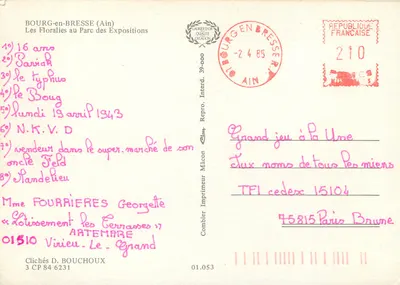 BOURG-en-BRESSE (Ain)
Les Floralies au Parc des Expositions
1°) 16 ans
2°) Parish
3°) le typhus
4°) le Boug
5°) lundi 19 avril 1943
6°) N.K.V.D
7°) vendeur dans le super-marché de son
oncle Feld
8°) Mandelieu
Mme FOURRIERES Georgette
"Lotissement les Terrasses 17
ARTEMARE
01510 Virieu-Le-Grand
Clichés D. BOUCHOUX
3 CP 84 6231
01.053
Combier Imprimeur Mâcon
Repro. Interd. 39-000
01 BOURG EN BRESSE R.P.
-2.4 85
AIN
REPUBLIQUE
FRANCAISE
210
Grand jeu à la Une
Aux noms de tous les miens
TF1 cedesc 15104
75815 Paris Brune